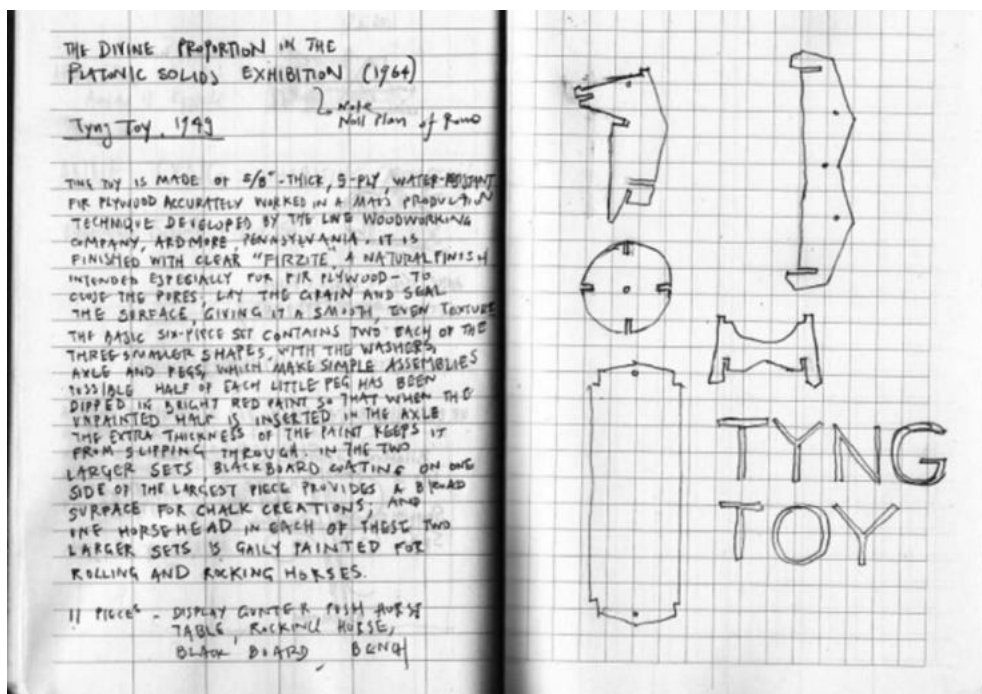 THE DIVINE PROPORTION IN THE
PLATONIC SOLIDS EXHIBITION (1964)
Note
Noll Plan of Rome
Tyng Toy, 1949
THE TOY IS MADE OF 5/8"-THICK, 5-PLY, WATER-RESISTANT
FIR PLYWOOD ACCURATELY WORKED IN A MASS PRODUCTION
TECHNIQUE DEVELOPED BY THE LINE WOODWORKING
COMPANY, ARDMORE, PENNSYLVANIA. IT IS
FINISHED WITH CLEAR "FIRZITE", A NATURAL FINISH
INTENDED ESPECIALLY FOR FIR PLYWOOD - TO
CLOSE THE PORES, LAY THE GRAIN AND SEAL
THE SURFACE, GIVING IT A SMOOTH, EVEN TEXTURE
THE BASIC SIX-PIECE SET CONTAINS TWO EACH OF THE
THREE SMALLER SHAPES, WITH THE WASHERS,
AXLE AND PEGS, WHICH MAKE SIMPLE ASSEMBLIES
POSSIBLE HALF OF EACH LITTLE PEG HAS BEEN
DIPPED IN BRIGHT RED PAINT SO THAT WHEN THE
UNPAINTED HALF IS INSERTED IN THE AXLE
THE EXTRA THICKNESS OF THE PAINT KEEPS IT
FROM SLIPPING THROUGH. IN THE TWO
LARGER SETS BLACKBOARD COATING ON ONE
SIDE OF THE LARGEST PIECE PROVIDES A BROAD
SURFACE FOR CHALK CREATIONS, AND
ONE HORSEHEAD IN EACH OF THESE TWO
LARGER SETS IS GAILY PAINTED FOR
ROLLING AND ROCKING HORSES.
11 PIECES - DISPLAY COUNTER PUSH HORSE
TABLE, ROCKING HORSE,
BLACK BOARD, BENCH
TYNG
TOY